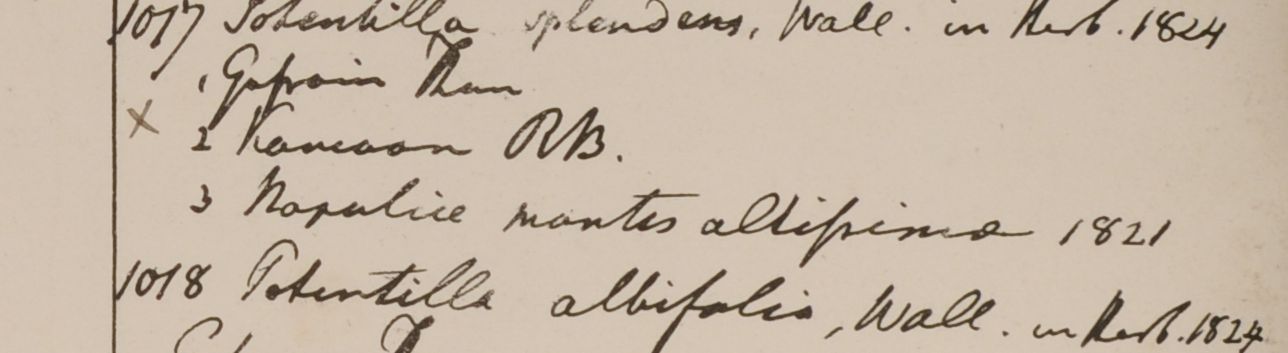 1017 Potentilla splendens, Wall. in Herb. 1824
1 Gossain Than
x
2 Kamaon RB.
3 Napaliæ montes altissima 1821
1018 Potentilla albifolia, Wall. in Herb. 1824